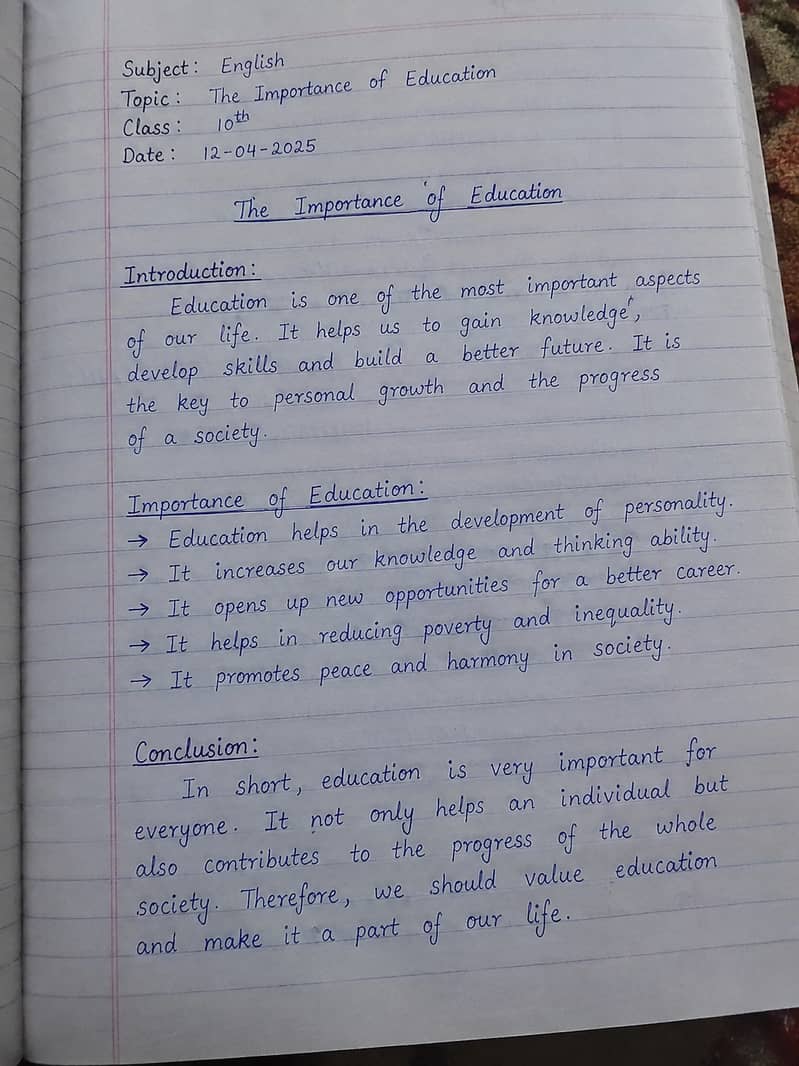 Subject: English
Topic: The Importance of Education
Class: 10th
Date: 12-04-2025
The Importance of Education
Introduction:
Education is one of the most important aspects
of our life. It helps us to gain knowledge,
develop skills and build a better future. It is
the key to personal growth and the progress
of a society.
Importance of Education:
→ Education helps in the development of personality.
→ It increases our knowledge and thinking ability.
→ It opens up new opportunities for a better career.
→ It helps in reducing poverty and inequality.
→ It promotes peace and harmony in society.
Conclusion:
In short, education is very important for
everyone. It not only helps an individual but
also contributes to the progress of the whole
society. Therefore, we should value education
and make it a part of our life.